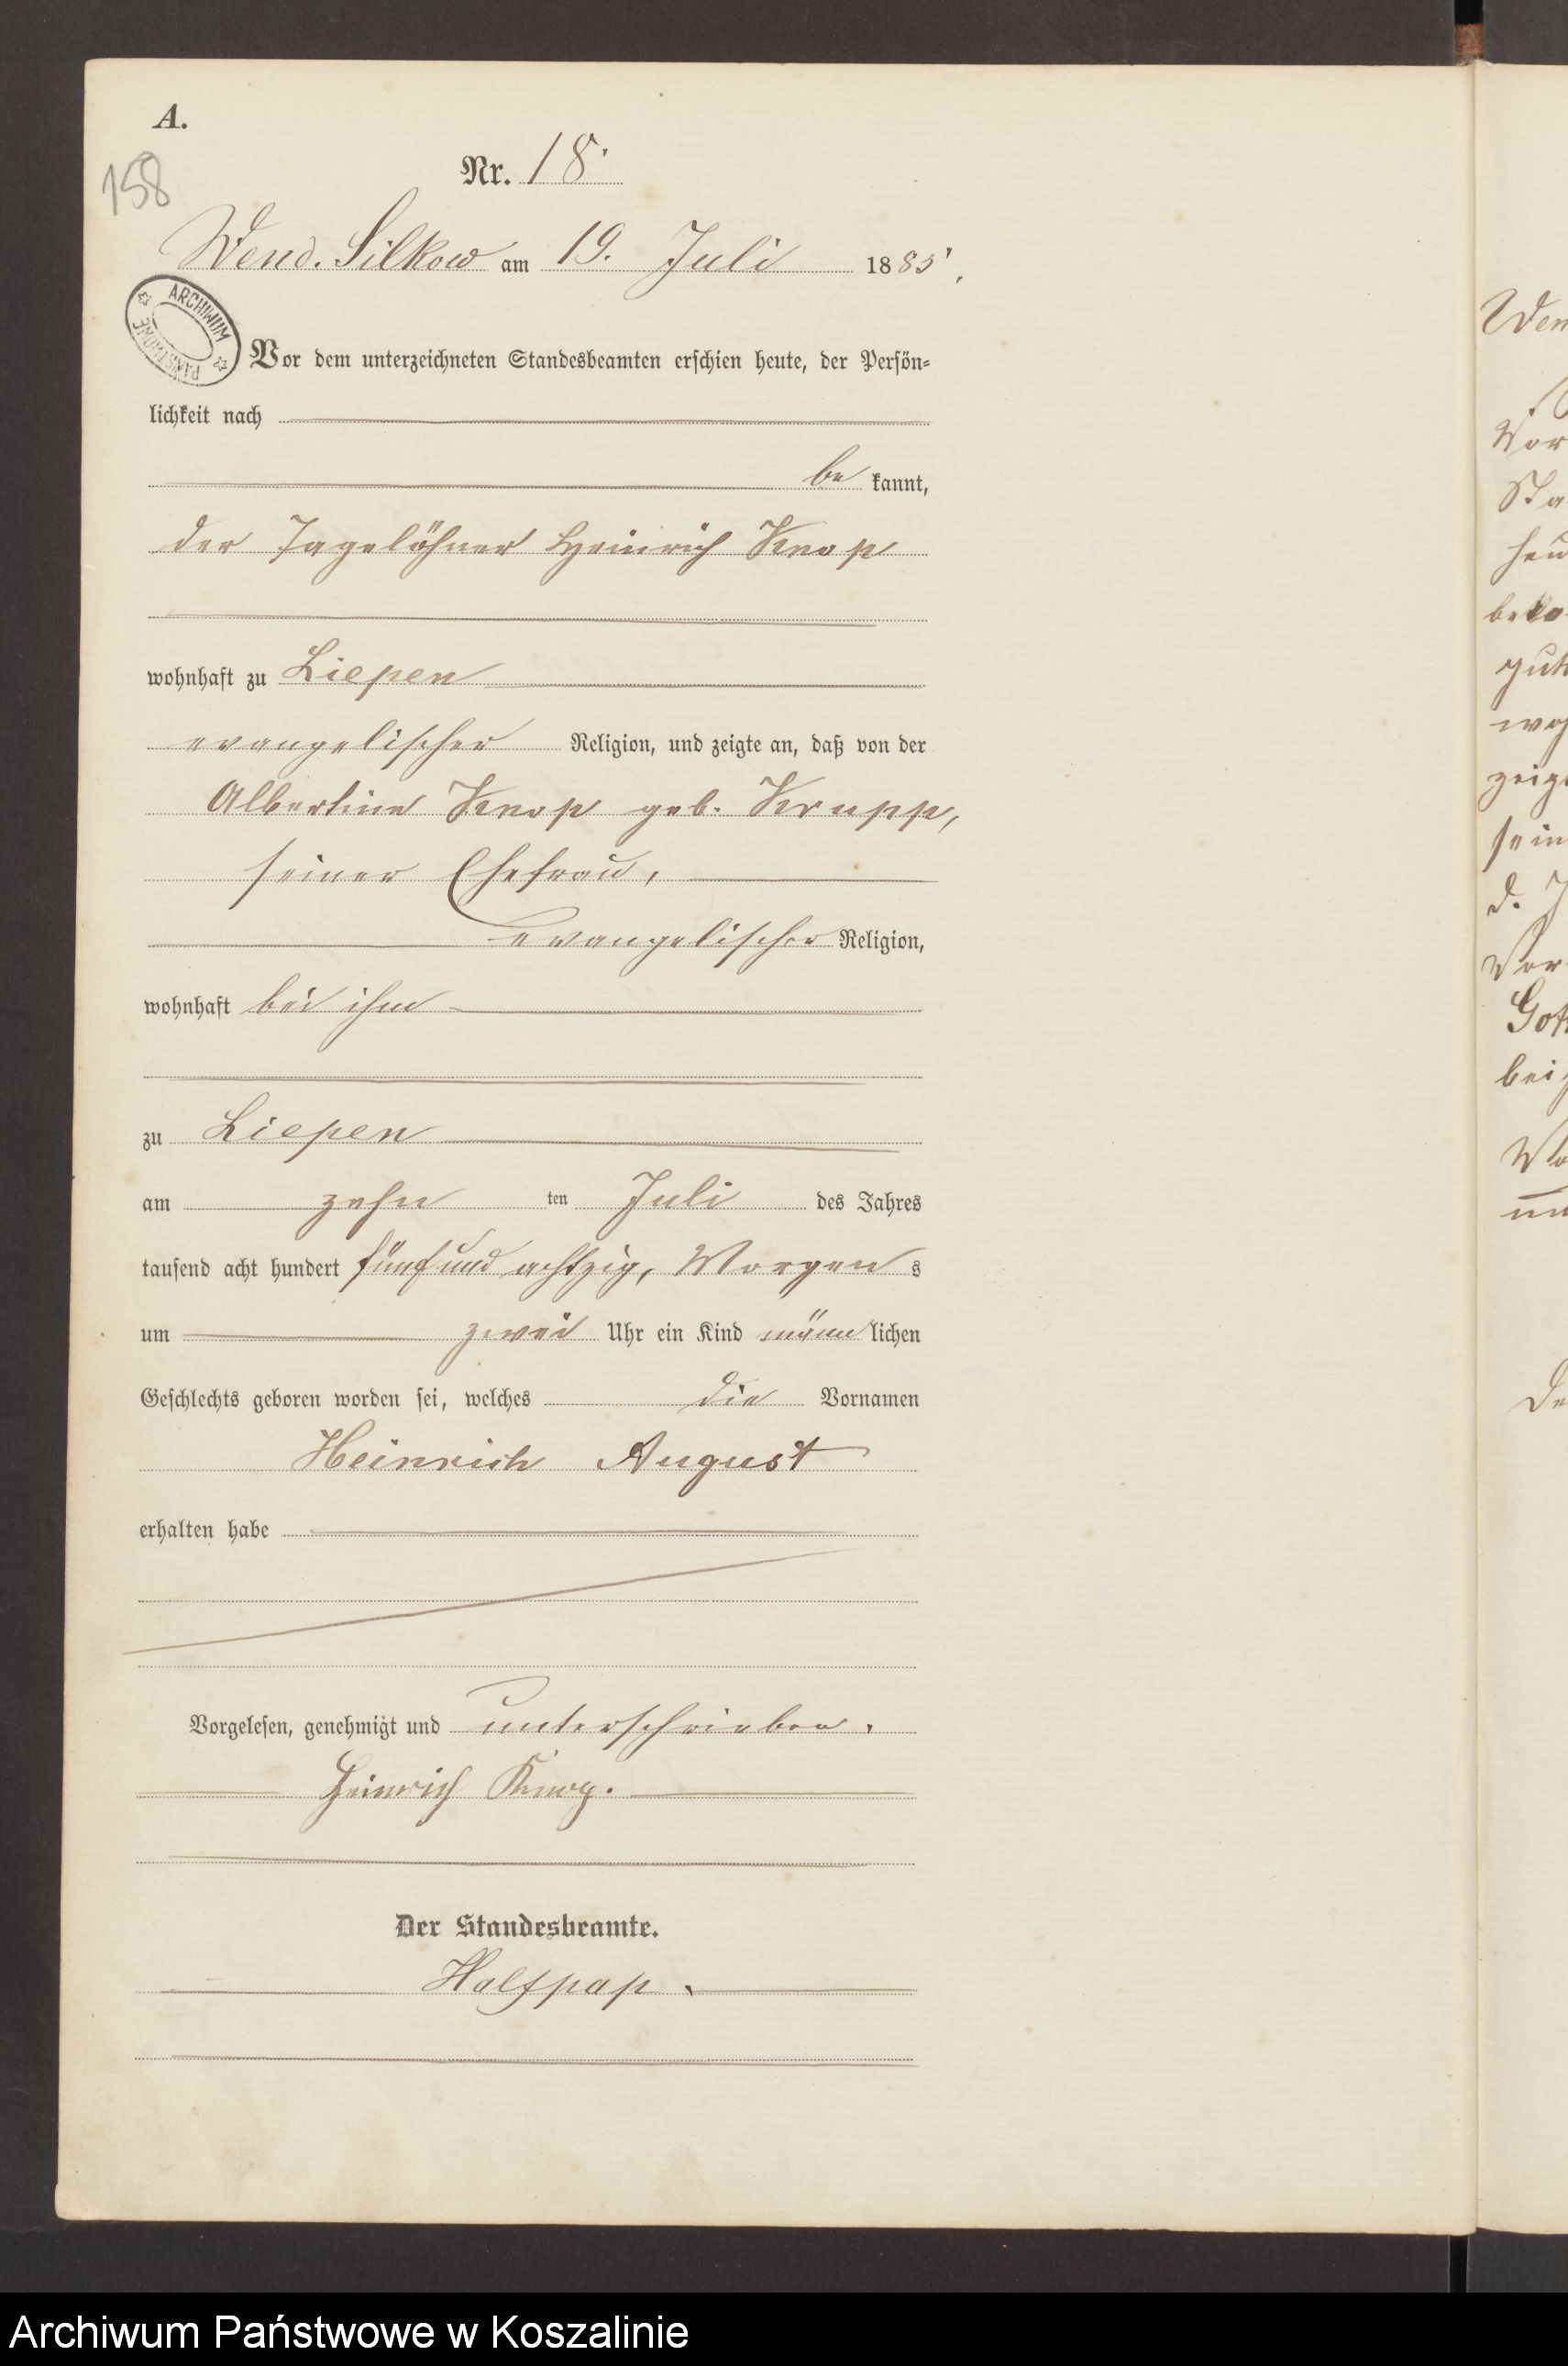 A.
158
Nr. 18.
Wend. Silkow am 19. Juli 1885.
ARCHIWUM PAŃSTWOWE
Vor dem unterzeichneten Standesbeamten erschien heute, der Persön-
lichkeit nach
be kannt,
der Tagelöhner Heinrich Knop
wohnhaft zu Liepen
evangelischer Religion, und zeigte an, daß von der
Albertine Knop geb. Krupp,
seiner Ehefrau,
evangelischer Religion,
wohnhaft bei ihm
zu Liepen
am zehn ten Juli des Jahres
tausend acht hundert fünf und achtzig, Morgen s
um zwei Uhr ein Kind männ lichen
Geschlechts geboren worden sei, welches die Vornamen
Heinrich August
erhalten habe
Vorgelesen, genehmigt und unterschrieben.
Heinrich Knop.
Der Standesbeamte.
Halfpap.
Archiwum Państwowe w Koszalinie